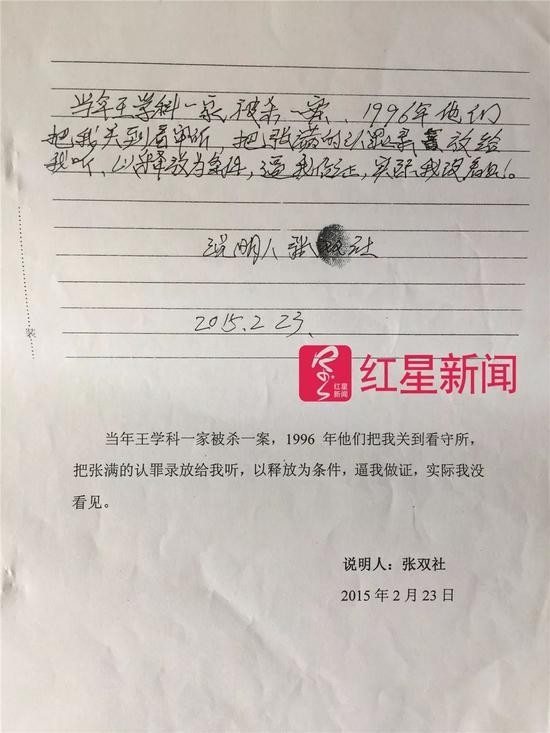 当年王学科一家被杀一案、1996年他们
把我关到看守所 把张满的认罪录 放给
我听、以释放为条件，逼我作证，实际我没看见。
说明人 张双社
2015.2 23、
装
红星新闻
红星新闻
当年王学科一家被杀一案，1996 年他们把我关到看守所，
把张满的认罪录放给我听，以释放为条件，逼我做证，实际我没
看见。
说明人：张双社
2015 年 2 月 23 日